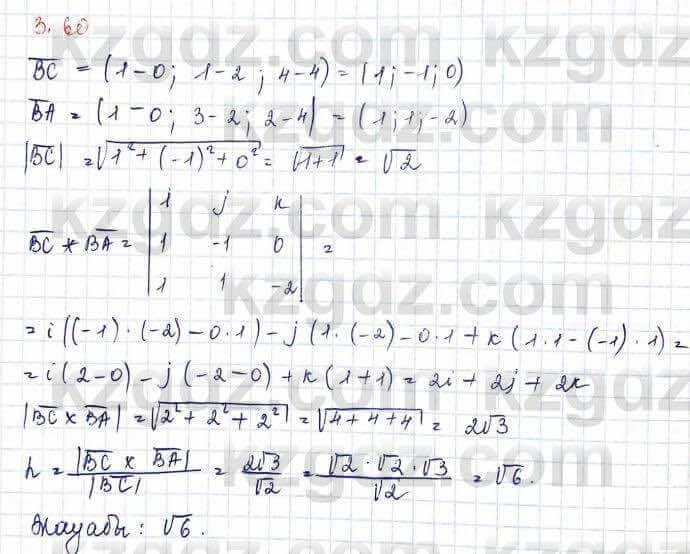 3.60
BC = (1-0; 1-2; 4-4) = (1; -1; 0)
BA = (1-0; 3-2; 2-4) = (1; 1; -2)
|BC| = √1² + (-1)² + 0² = √1+1 = √2
i j k
BC * BA = 1 -1 0 =
1 1 -2
= i((-1)·(-2) - 0·1) - j(1·(-2) - 0·1 + k(1·1 - (-1)·1) =
= i(2-0) - j(-2-0) + k(1+1) = 2i + 2j + 2k
|BC × BA| = √2² + 2² + 2² = √4+4+4 = 2√3
h = |BC × BA| / |BC| = 2√3 / √2 = √2·√2·√3 / √2 = √6.
Жауабы: √6.
kzgdz.com